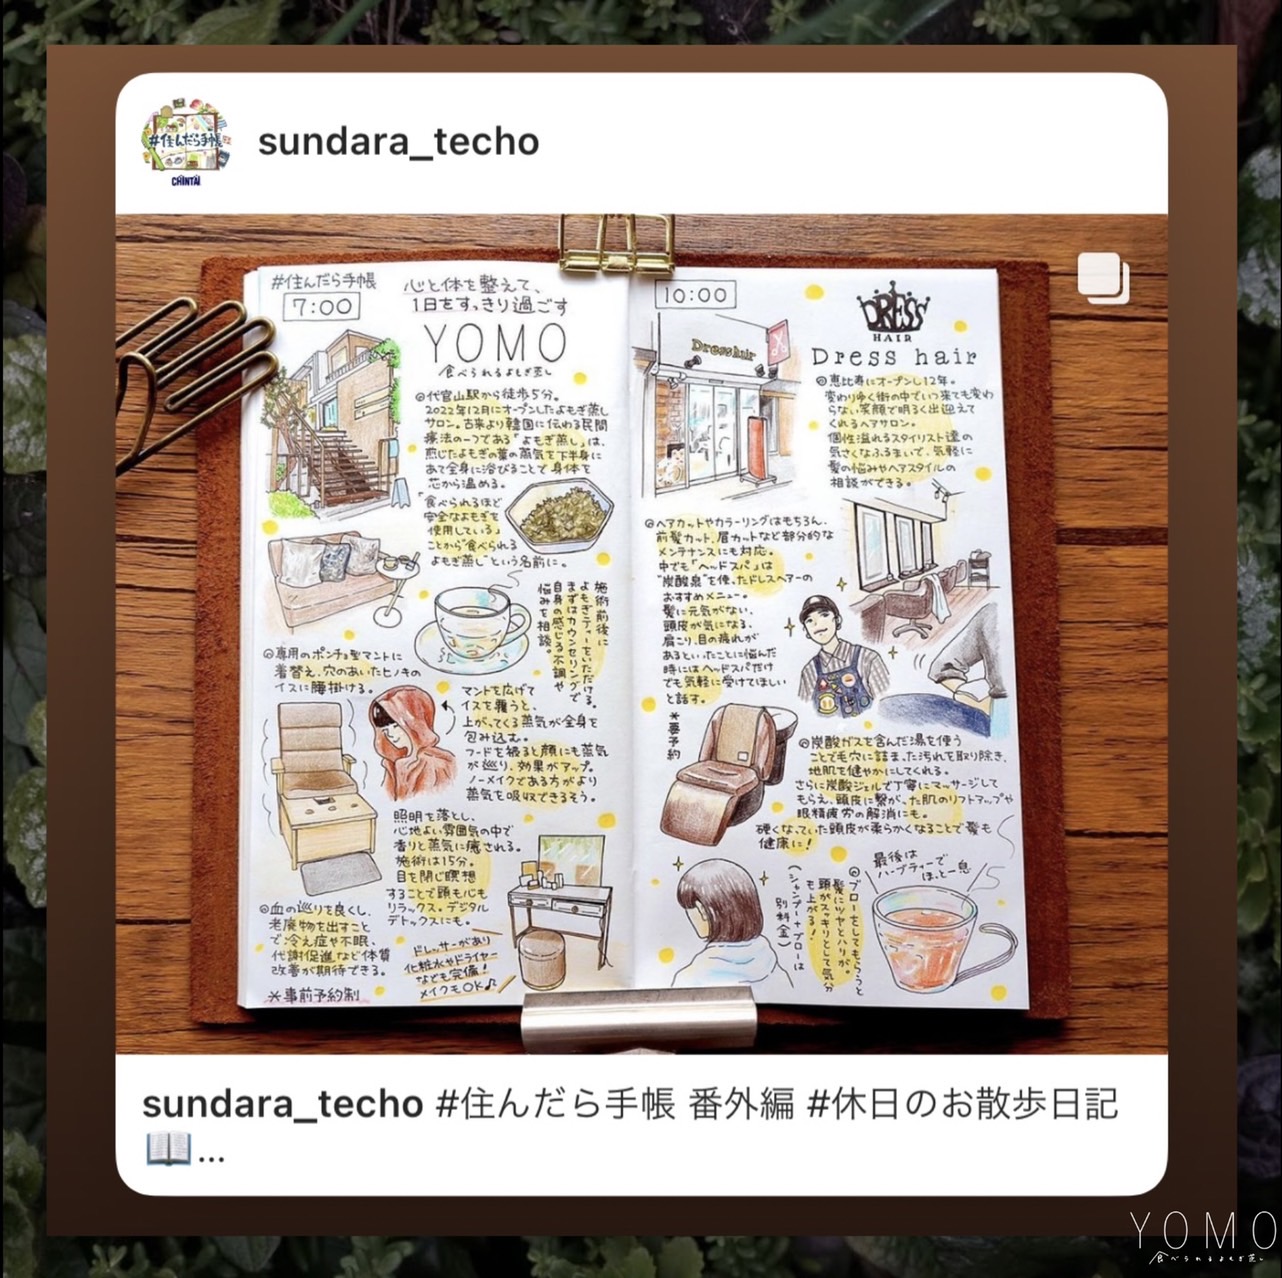 #住んだら手帳
CHINTAI
sundara_techo
#住んだら手帳
7:00
心と体を整えて、
1日をすっきり過ごす
YOMO
食べられるよもぎ蒸し
◎代官山駅から徒歩5分。
2022年12月にオープンしたよもぎ蒸し
サロン。古来より韓国に伝わる民間
療法の一つである「よもぎ蒸し」は、
煎じたよもぎの葉の蒸気を下半身に
あて全身に浴びることで身体を
芯から温める。
「食べられるほど
安全なよもぎを
使用している」
ことから"食べられる
よもぎ蒸し"という名前に。
施術前後に
よもぎティーをいただける。
まずはカウンセリングで
自身の感じる不調や
悩みを相談。
◎専用のポンチョ型マントに
着替え、穴のあいたヒノキの
イスに腰掛ける。
マントを広げて
イスを覆うと、
上がってくる蒸気が全身を
包み込む。
フードを被ると顔にも蒸気
が巡り、効果がアップ。
ノーメイクである方がより
蒸気を吸収できるそう。
照明を落とし、
心地よい雰囲気の中で
香りと蒸気に癒される。
施術は15分。
目を閉じ瞑想
することで頭も心も
リラックス。デジタル
デトックスにも。
◎血の巡りを良くし、
老廃物を出すこと
で冷え症や不眠、
代謝促進など体質
改善が期待できる。
※事前予約制
ドレッサーがあり
化粧水やドライヤー
なども完備!
メイクもOK♪
10:00
DRESS
HAIR
Dress hair
Dress hair
◎恵比寿にオープンし12年。
変わりゆく街の中でいつ来ても変わ
らない笑顔で明るく出迎えて
くれるヘアサロン。
個性溢れるスタイリスト達の
気さくなふるまいで、気軽に
髪の悩みやヘアスタイルの
相談ができる。
◎ヘアカットやカラーリングはもちろん、
前髪カット、眉カットなど部分的な
メンテナンスにも対応。
中でも「ヘッドスパ」は
"炭酸泉"を使ったドレスヘアーの
おすすめメニュー。
髪に元気がない、
頭皮が気になる、
肩こり、目の疲れが
あるといったことに悩んだ
時にはヘッドスパだけ
でも気軽に受けてほしい
と話す。
※要予約
◎炭酸ガスを含んだ湯を使う
ことで毛穴に詰まった汚れを取り除き、
地肌を健やかにしてくれる。
さらに炭酸ジェルで丁寧にマッサージして
もらえ、頭皮に繋がった肌のリフトアップや
眼精疲労の解消にも。
硬くなっていた頭皮が柔らかくなることで髪も
健康に!
◎ブローをしてもらうと
髪にツヤとハリが。
頭がスッキリとして気分
も上がる!
(シャンプー+ブローは
別料金)
最後は
ハーブティーで
ほっと一息
sundara_techo #住んだら手帳 番外編 #休日のお散歩日記
📖...
YOMO
食べられるよもぎ蒸し